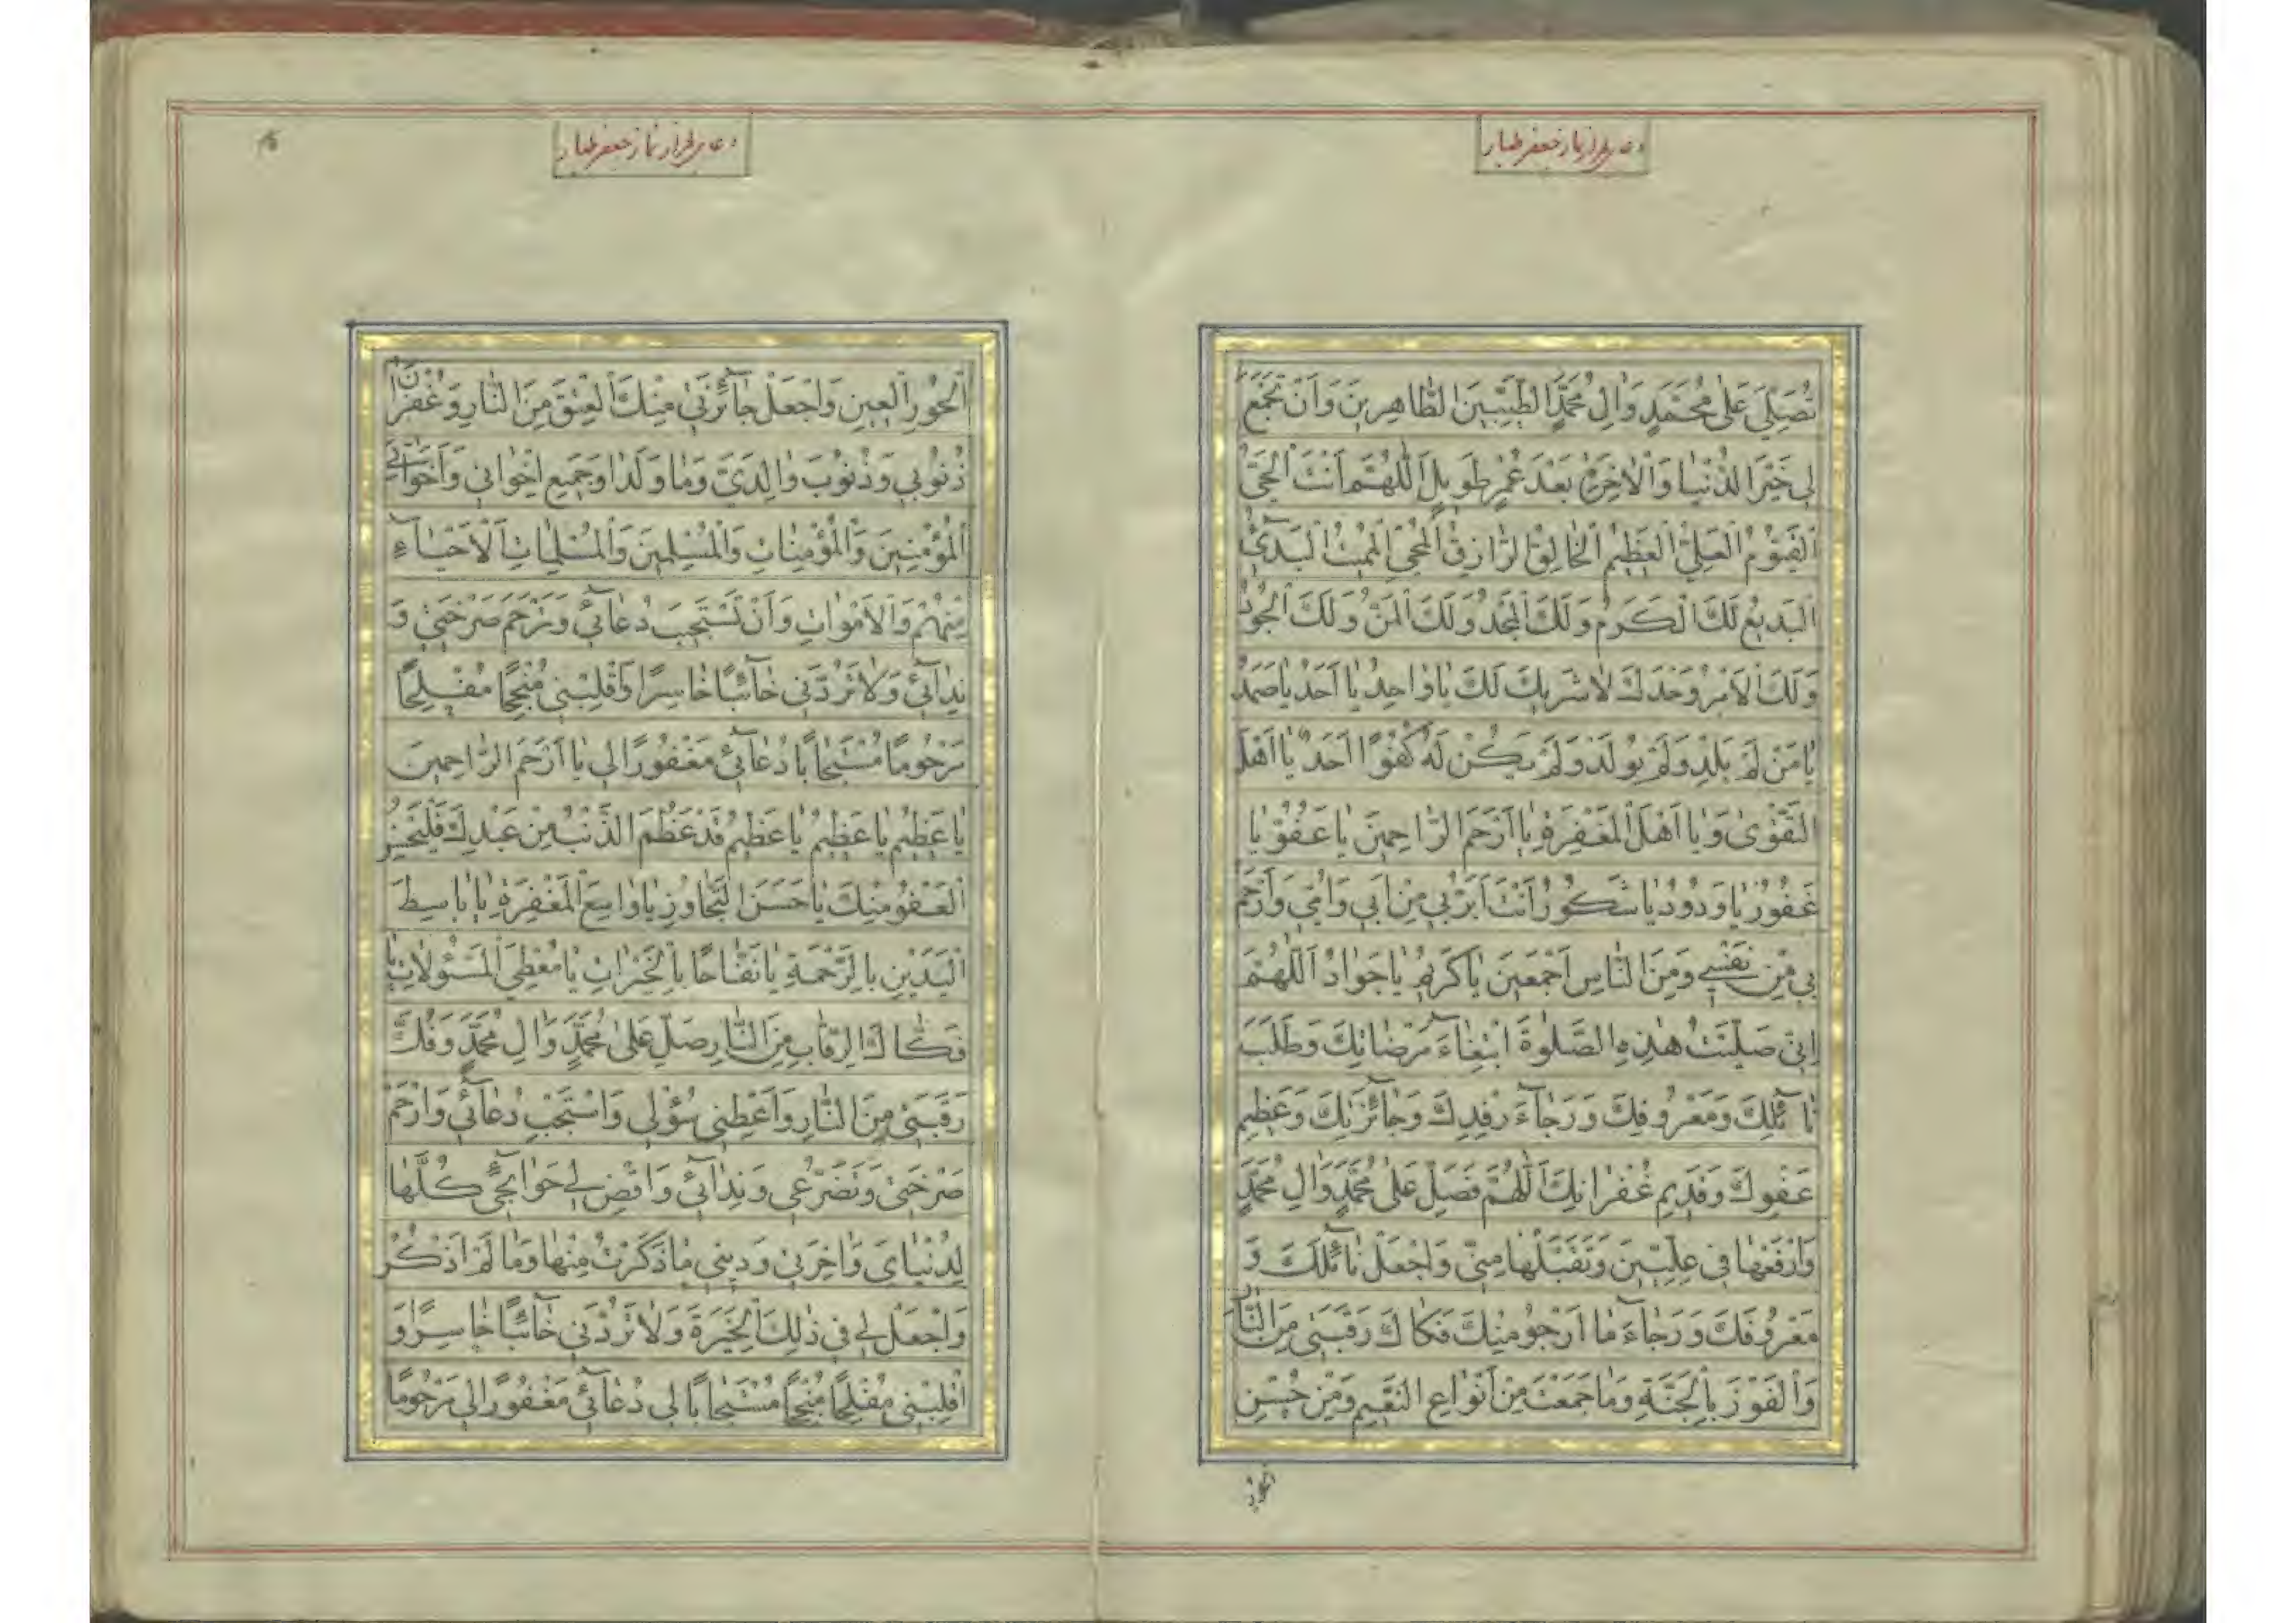 دعاء بعد از نماز جعفر طیار
تُصَلِّيَ عَلىٰ مُحَمَّدٍ وَاٰلِ مُحَمَّدٍ الطَّيِّبِينَ الطَّاهِرِينَ وَاَنْ تَجْمَعَ
لِي خَيْرَ الدُّنْيٰا وَالْاٰخِرَةِ بَعْدَ عُمْرٍ طَوِيلٍ اَللّٰهُمَّ اَنْتَ الْحَيُّ
الْقَيُّوْمُ الْعَلِيُّ الْعَظِيْمُ الْخٰالِقُ الرّٰازِقُ الْمُحْيِي الْمُمِيْتُ الْبَدِيْٓئُ
الْبَدِيْعُ لَكَ الْكَرَمُ وَلَكَ الْمَجْدُ وَلَكَ الْمَنُّ وَلَكَ الْجُوْدُ
وَلَكَ الْاَمْرُ وَحْدَكَ لٰا شَرِيْكَ لَكَ يٰا وٰاحِدُ يٰا اَحَدُ يٰا صَمَدُ
يٰا مَنْ لَمْ يَلِدْ وَلَمْ يُوْلَدْ وَلَمْ يَكُنْ لَهُ كُفُوًا اَحَدٌ يٰا اَهْلَ
التَّقْوٰى وَيٰا اَهْلَ الْمَغْفِرَةِ يٰا اَرْحَمَ الرّٰاحِمِينَ يٰا عَفُوُّ يٰا
غَفُوْرُ يٰا وَدُوْدُ يٰا شَكُوْرُ اَنْتَ اَبَرُّ بِي مِنْ اَبِي وَاُمِّي وَاَرْحَمُ
بِي مِنْ نَفْسِي وَمِنَ النّٰاسِ اَجْمَعِينَ يٰا كَرِيْمُ يٰا جَوٰادُ اَللّٰهُمَّ
اِنِّي صَلَّيْتُ هٰذِهِ الصَّلٰوةَ ابْتِغٰٓاءَ مَرْضٰاتِكَ وَطَلَبَ
نٰآئِلِكَ وَمَعْرُوفِكَ وَرَجٰٓاءَ رِفْدِكَ وَجٰٓائِزَتِكَ وَعَظِيْمِ
عَفْوِكَ وَقَدِيْمِ غُفْرٰانِكَ اَللّٰهُمَّ فَصَلِّ عَلىٰ مُحَمَّدٍ وَاٰلِ مُحَمَّدٍ
وَارْفَعْهٰا فِي عِلِّيِّينَ وَتَقَبَّلْهٰا مِنِّي وَاجْعَلْ نٰآئِلَكَ وَ
مَعْرُوفَكَ وَرَجٰٓاءَ مٰا اَرْجُو مِنْكَ فَكٰاكَ رَقَبَتِي مِنَ النّٰارِ
وَالْفَوْزَ بِالْجَنَّةِ وَمٰا جَمَعْتَ مِنْ اَنْوٰاعِ النَّعِيْمِ وَمِنْ حُسْنِ
الحور
دعاء بعد از نماز جعفر طیار
الْحُوْرِ الْعِيْنِ وَاجْعَلْ جٰٓائِزَتِي مِنْكَ الْعِتْقَ مِنَ النّٰارِ وَغُفْرٰانَ
ذُنُوْبِي وَذُنُوْبِ وٰالِدَيَّ وَمٰا وَلَدٰا وَجَمِيْعِ اِخْوٰانِي وَاَخَوٰاتِي
الْمُؤْمِنِيْنَ وَالْمُؤْمِنٰاتِ وَالْمُسْلِمِيْنَ وَالْمُسْلِمٰاتِ الْاَحْيٰٓاءِ
مِنْهُمْ وَالْاَمْوٰاتِ وَاَنْ تَسْتَجِيْبَ دُعٰٓائِي وَتَرْحَمَ صَرْخَتِي وَ
نِدٰٓائِي وَلٰا تَرُدَّنِي خٰٓائِبًا خٰاسِرًا وَاقْلِبْنِي مُنْجِحًا مُفْلِحًا
مَرْحُوْمًا مُسْتَجٰابًا دُعٰٓائِي مَغْفُوْرًا لِي يٰا اَرْحَمَ الرّٰاحِمِيْنَ
يٰا عَظِيْمُ يٰا عَظِيْمُ يٰا عَظِيْمُ قَدْ عَظُمَ الذَّنْبُ مِنْ عَبْدِكَ فَلْيَحْسُنِ
الْعَفْوُ مِنْكَ يٰا حَسَنَ التَّجٰاوُزِ يٰا وٰاسِعَ الْمَغْفِرَةِ يٰا بٰاسِطَ
الْيَدَيْنِ بِالرَّحْمَةِ يٰا نَفّٰاحًا بِالْخَيْرٰاتِ يٰا مُعْطِيَ الْمَسْئُوْلٰاتِ يٰا
فَكّٰاكَ الرِّقٰابِ مِنَ النّٰارِ صَلِّ عَلىٰ مُحَمَّدٍ وَاٰلِ مُحَمَّدٍ وَفُكَّ
رَقَبَتِي مِنَ النّٰارِ وَاَعْطِنِي سُؤْلِي وَاسْتَجِبْ دُعٰٓائِي وَارْحَمْ
صَرْخَتِي وَتَضَرُّعِي وَنِدٰٓائِي وَاقْضِ لِي حَوٰٓائِجِي كُلَّهٰا
لِدُنْيٰايَ وَاٰخِرَتِي وَدِيْنِي مٰا ذَكَرْتُ مِنْهٰا وَمٰا لَمْ اَذْكُرْ
وَاجْعَلْ لِي فِي ذٰلِكَ الْخِيَرَةَ وَلٰا تَرُدَّنِي خٰٓائِبًا خٰاسِرًا وَ
اقْلِبْنِي مُفْلِحًا مُنْجِحًا مُسْتَجٰابًا لِي دُعٰٓائِي مَغْفُوْرًا لِي مَرْحُوْمًا